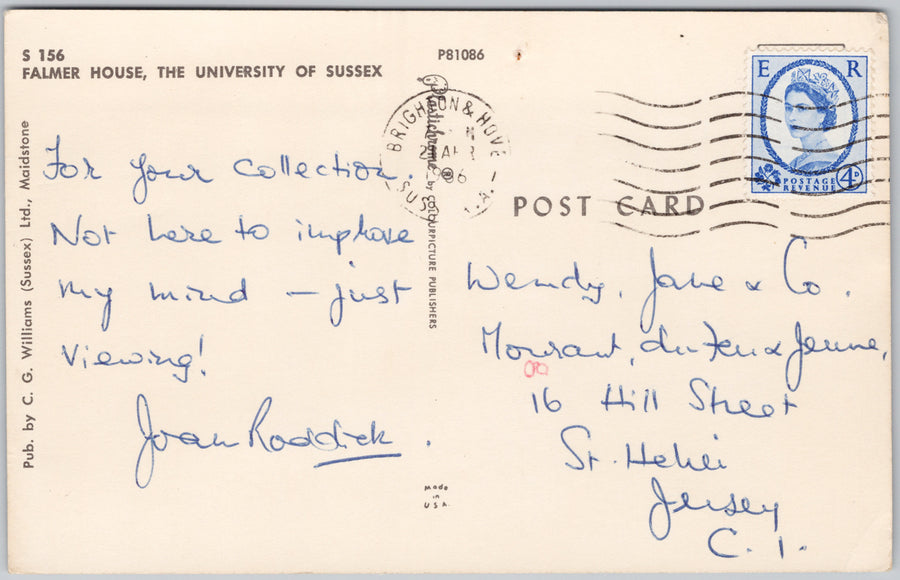 S 156
FALMER HOUSE, THE UNIVERSITY OF SUSSEX
P81086
Pub. by C. G. Williams (Sussex) Ltd., Maidstone
For your collection.
Not here to improve
my mind – just
viewing!
Joan Roddick.
Plastichrome® by COLOURPICTURE PUBLISHERS
BRIGHTON & HOVE
SUSSEX
E R
POSTAGE
REVENUE
4D
POST CARD
Wendy, Jane & Co.
Mourant, du Feu & Jeune,
16 Hill Street
St. Helier
Jersey
C. I.
Made
in
U.S.A.